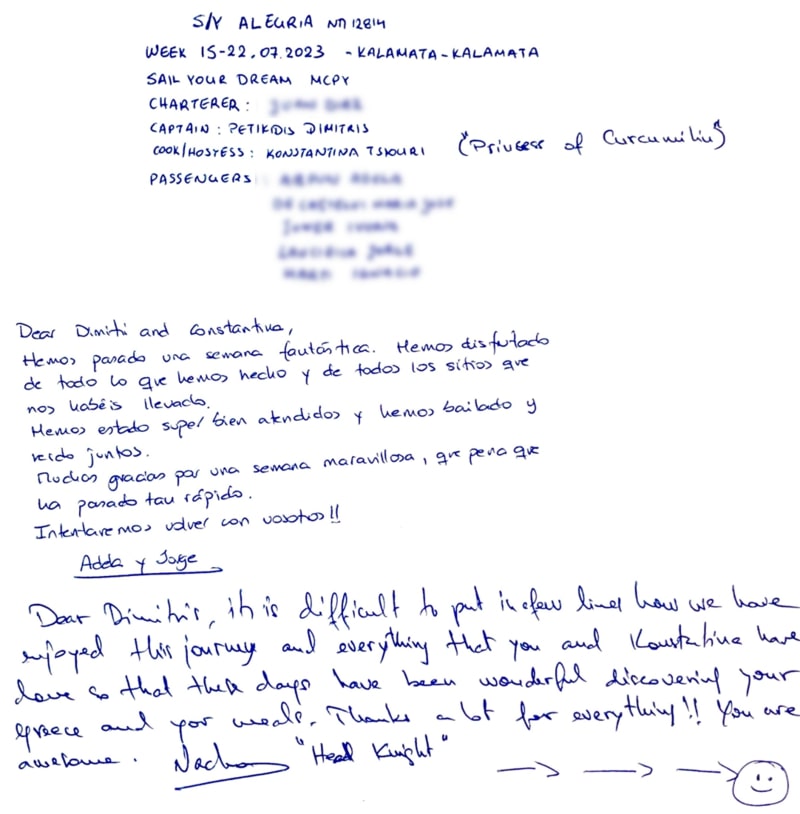 S/Y ALEGRIA NΠ 12814
WEEK 15-22.07.2023 - KALAMATA-KALAMATA
SAIL YOUR DREAM MCPY
CHARTERER:
CAPTAIN: PETIKIDIS DIMITRIS
COOK/HOSTESS: KONSTANTINA TSIOURI ("Princess of Curcumiliu")
PASSENGERS:
Dear Dimitri and Constantina,
Hemos pasado una semana fantástica. Hemos disfrutado
de todo lo que hemos hecho y de todos los sitios que
nos habéis llevado.
Hemos estado super bien atendidos y hemos bailado y
reido juntos.
Muchas gracias por una semana maravillosa, que pena que
ha pasado tan rápido.
Intentaremos volver con vosotros!!
Adda y Jorge
Dear Dimitris, it is difficult to put in few lines how we have
enjoyed this journey and everything that you and Konstantina have
done so that these days have been wonderful discovering your
greece and your meals. Thanks a lot for everything!! You are
awesome. Nacho "Head Knight"